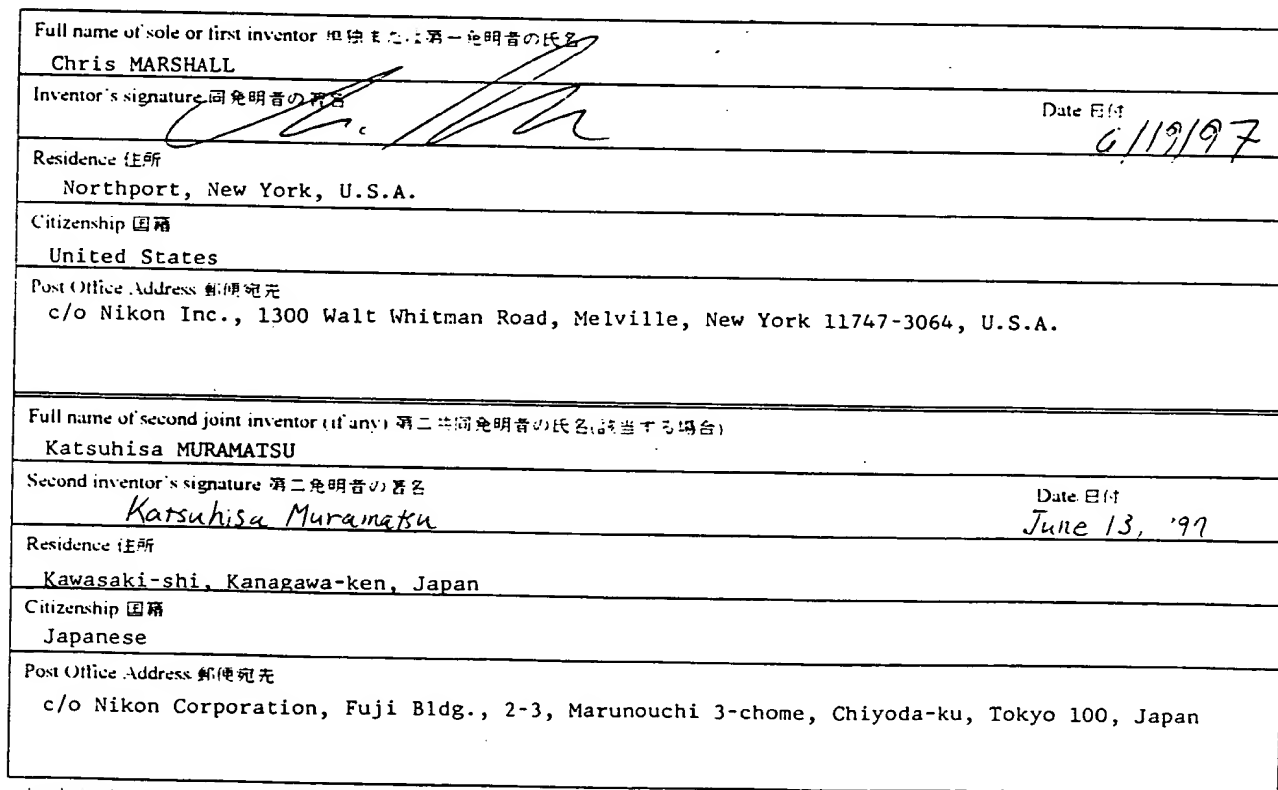 Full name of sole or first inventor 単独または第一発明者の氏名
Chris MARSHALL
Inventor's signature 同発明者の署名
Date 日付
6/19/97
Residence 住所
Northport, New York, U.S.A.
Citizenship 国籍
United States
Post Office Address 郵便宛先
c/o Nikon Inc., 1300 Walt Whitman Road, Melville, New York 11747-3064, U.S.A.
Full name of second joint inventor (if any) 第二共同発明者の氏名(該当する場合)
Katsuhisa MURAMATSU
Second inventor's signature 第二発明者の署名
Date 日付
Katsuhisa Muramatsu
June 13, '97
Residence 住所
Kawasaki-shi, Kanagawa-ken, Japan
Citizenship 国籍
Japanese
Post Office Address 郵便宛先
c/o Nikon Corporation, Fuji Bldg., 2-3, Marunouchi 3-chome, Chiyoda-ku, Tokyo 100, Japan